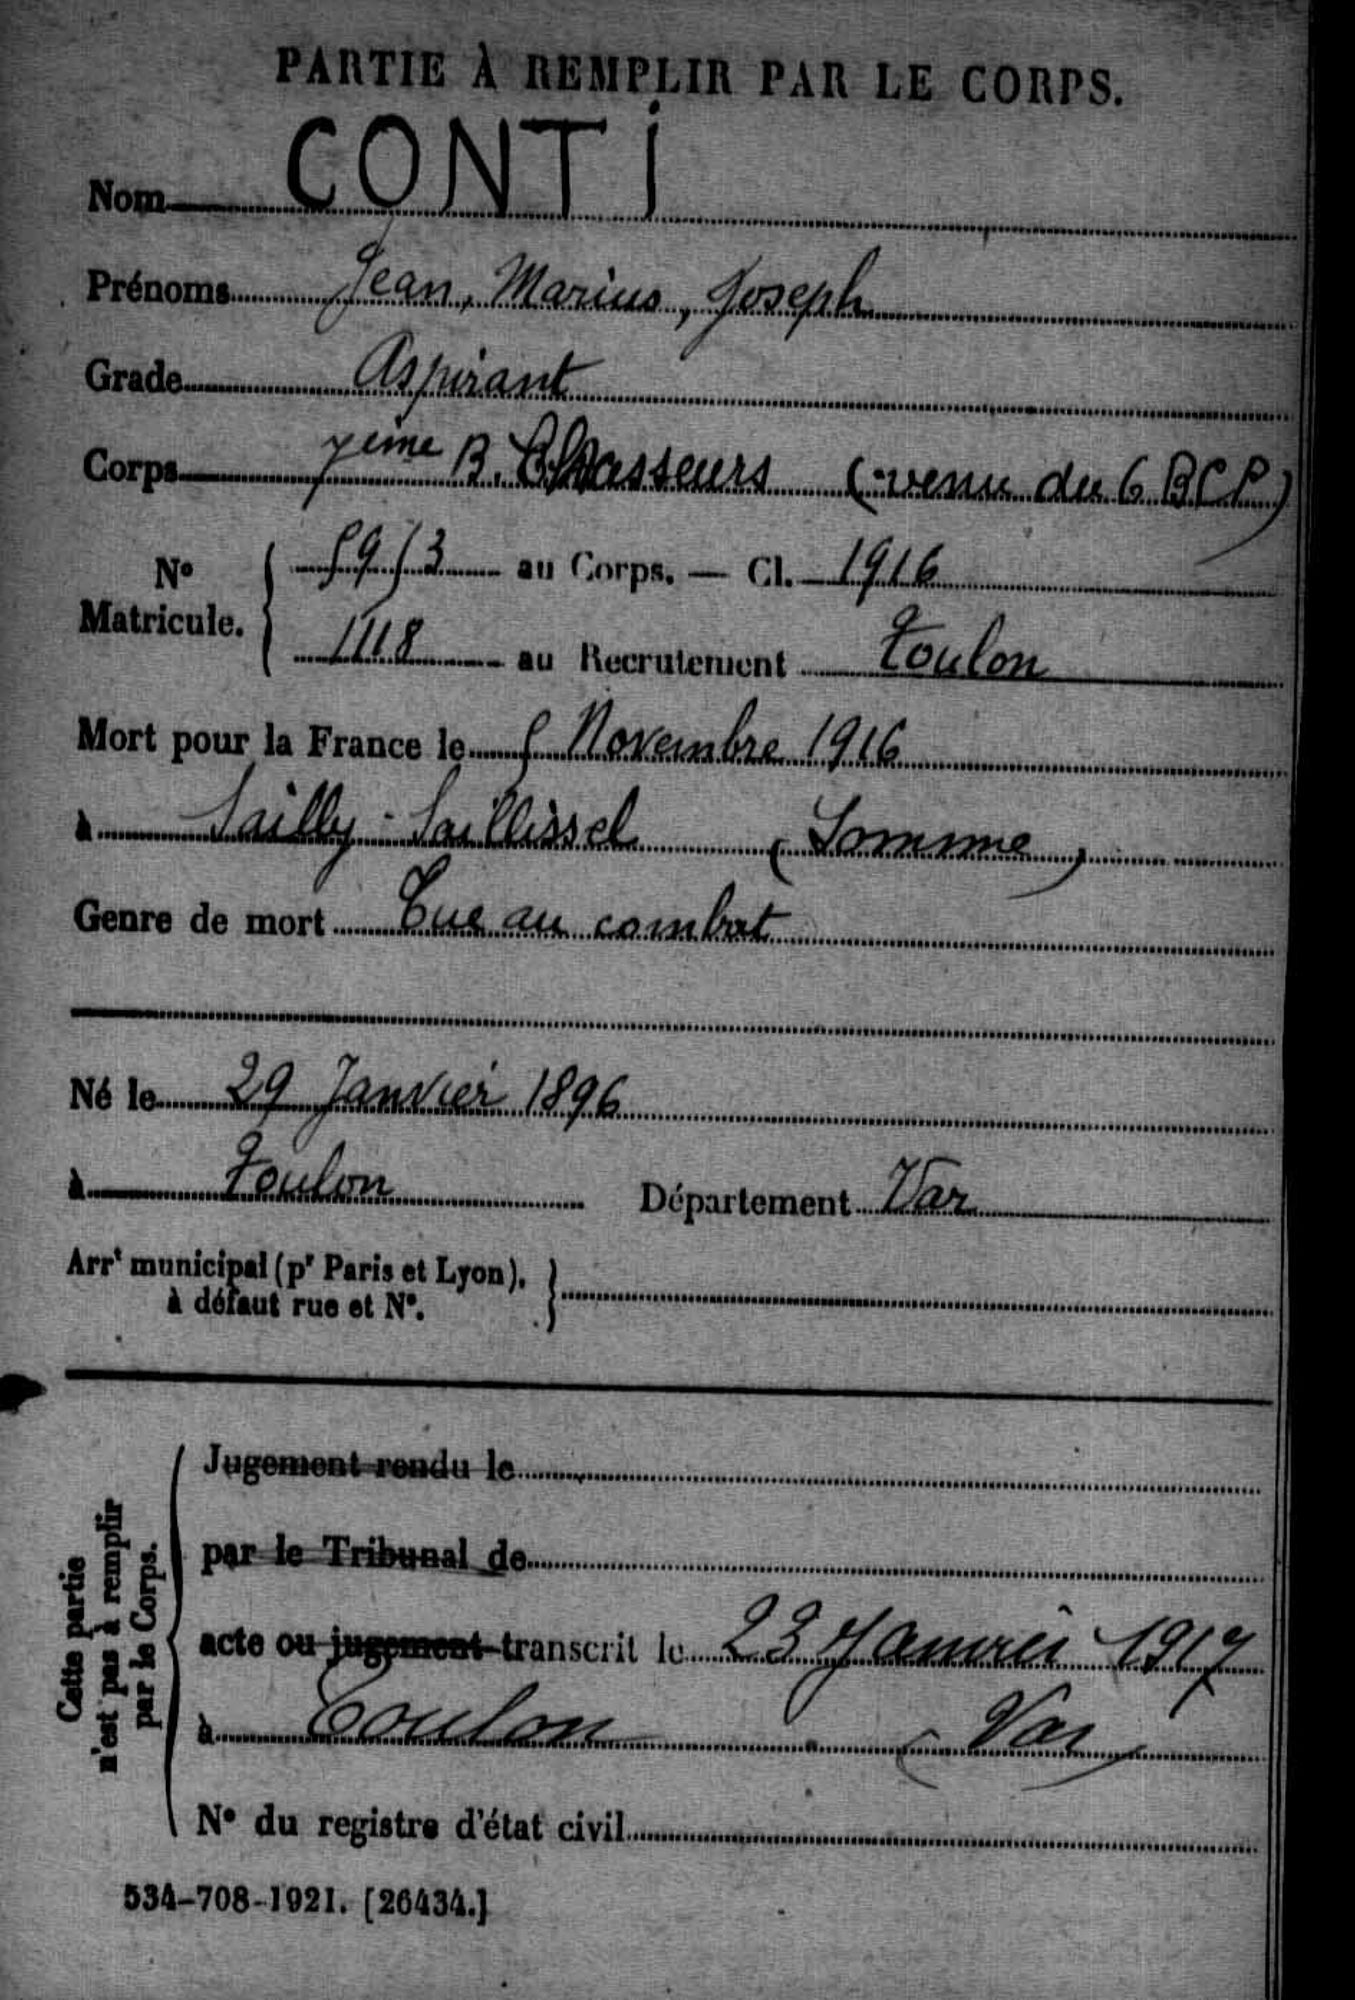 PARTIE À REMPLIR PAR LE CORPS.
Nom CONTI
Prénoms Jean, Marius, Joseph
Grade Aspirant
Corps 7ème B. Chasseurs (venu du 6 BCP)
N° Matricule. 5913 au Corps. — Cl. 1916
1118 au Recrutement Toulon
Mort pour la France le 5 Novembre 1916
à Sailly-Saillissel (Somme)
Genre de mort Tué au combat
Né le 29 Janvier 1896
à Toulon Département Var
Arrt municipal (pr Paris et Lyon),
à défaut rue et N°.
Cette partie n'est pas à remplir par le Corps.
Jugement rendu le
par le Tribunal de
acte ou jugement transcrit le 23 Janvier 1917
à Toulon (Var)
N° du registre d'état civil
534-708-1921. [26434.]